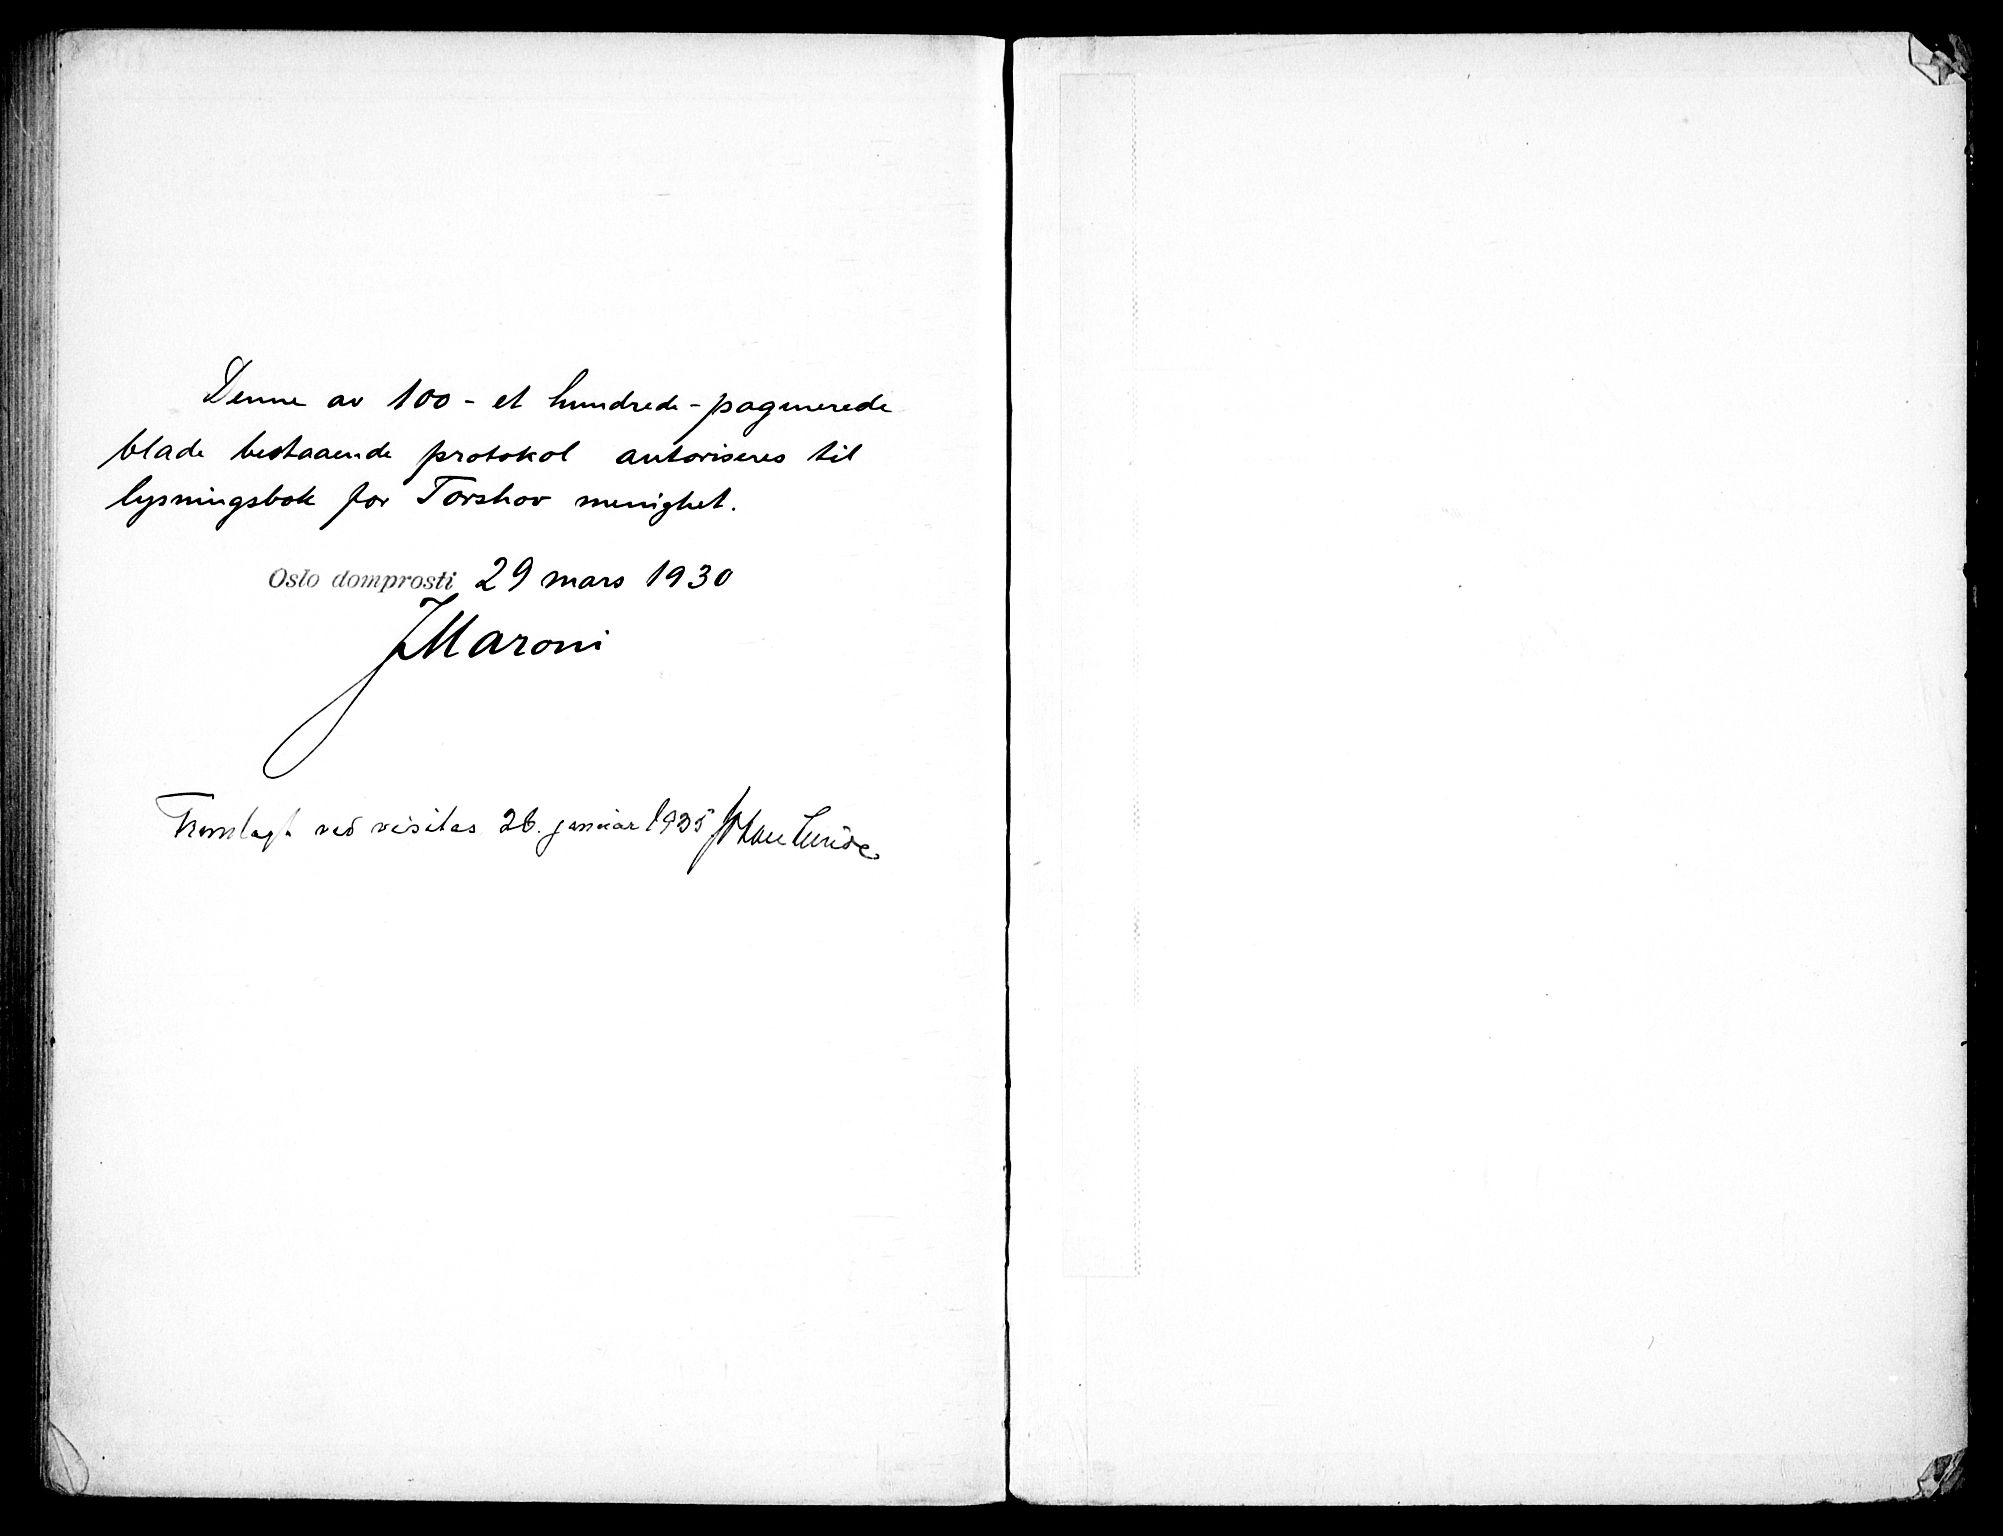 Denne av 100 - et hundrede - paginerede
blade bestaaende protokol autoriseres til
lysningsbok for Torshov menighet.
Oslo domprosti 29 mars 1930
J Maroni
Fremlagt ved visitas 26. januar 1935 Johan Lunde